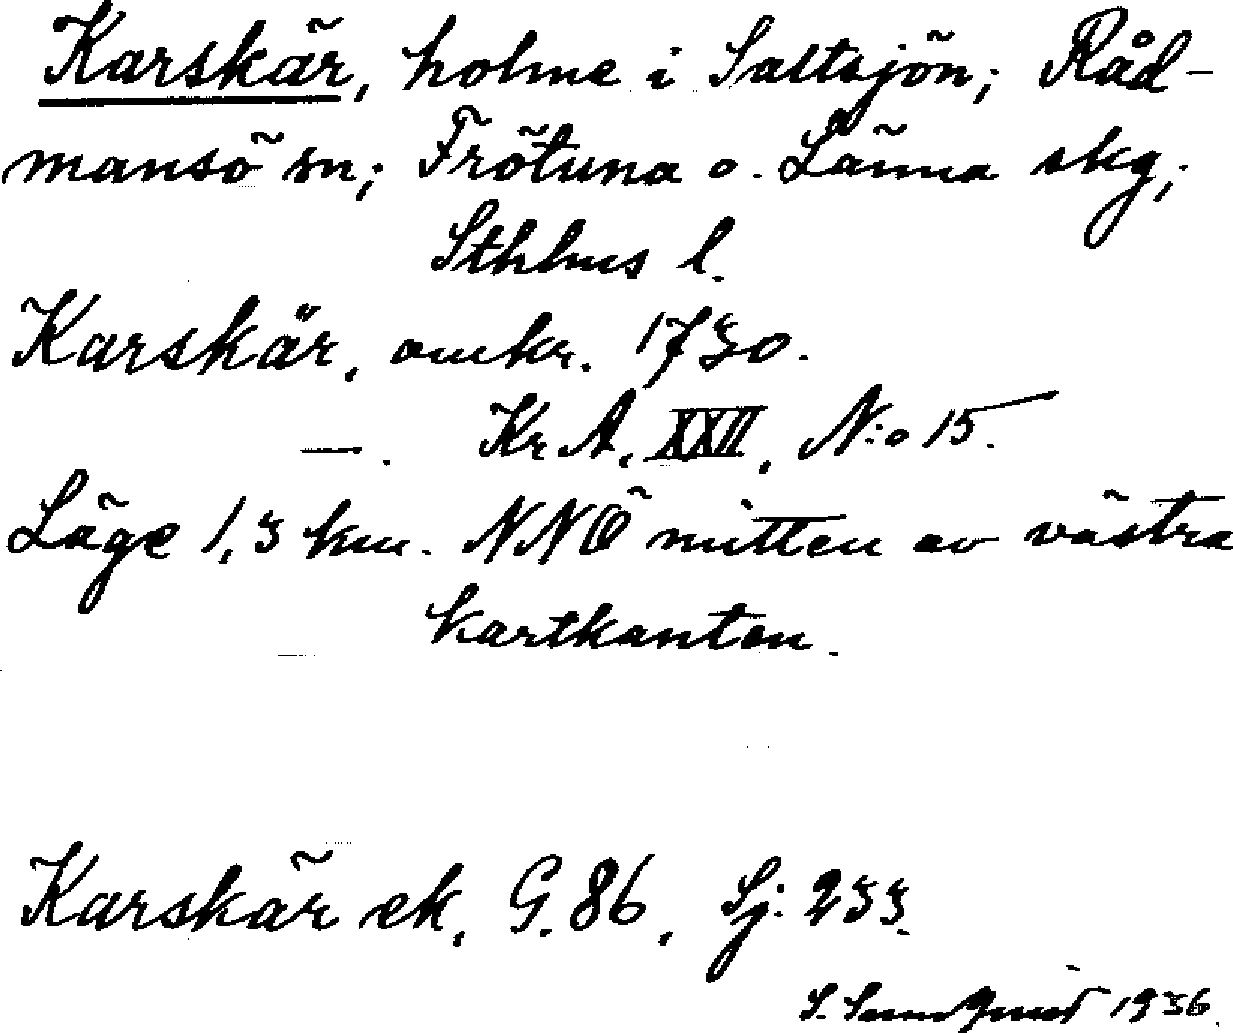 Karskär, holme i Saltsjön; Råd-
mansö sn; Frötuna o. Länna skg;
Sthlms l.
Karskär, omkr. 1730.
—. Kr. A. XXII, N:o 15.
Läge 1,3 km. NNÖ mitten av västra
kartkanten.
Karskär ek. G. 86, Sj: 233.
S. Sundquist 1936.